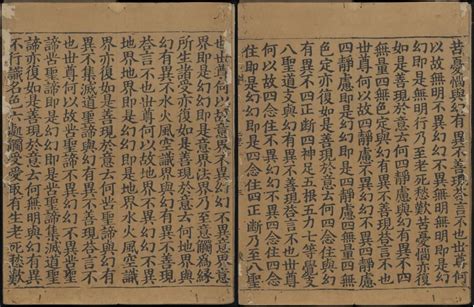 也世尊何以故意界不異幻幻不異意界意
界即是幻幻即是意界法界乃至意觸為緣
所生諸受亦復如是善現於意云何地界與
幻有異不水火風空識界與幻有異不善現
答言不也世尊何以故地界不異幻幻不異
地界地界即是幻幻即是地界水火風空識
界亦復如是善現於意云何苦聖諦與幻有
異不集滅道聖諦與幻有異不善現答言不
也世尊何以故苦聖諦不異幻幻不異苦聖
諦苦聖諦即是幻幻即是苦聖諦集滅道聖
諦亦復如是善現於意云何無明與幻有異
不行識名色六處觸受愛取有生老死愁歎
苦憂惱與幻有異不善現答言不也世尊何
以故無明不異幻幻不異無明無明即是幻
幻即是無明行乃至老死愁歎苦憂惱亦復
如是善現於意云何四靜慮與幻有異不四
無量四無色定與幻有異不善現答言不也
世尊何以故四靜慮不異幻幻不異四靜慮
四靜慮即是幻幻即是四靜慮四無量四無
色定亦復如是善現於意云何四念住與幻
有異不四正斷四神足五根五力七等覺支
八聖道支與幻有異不善現答言不也世尊
何以故四念住不異幻幻不異四念住四念
住即是幻幻即是四念住四正斷乃至八聖